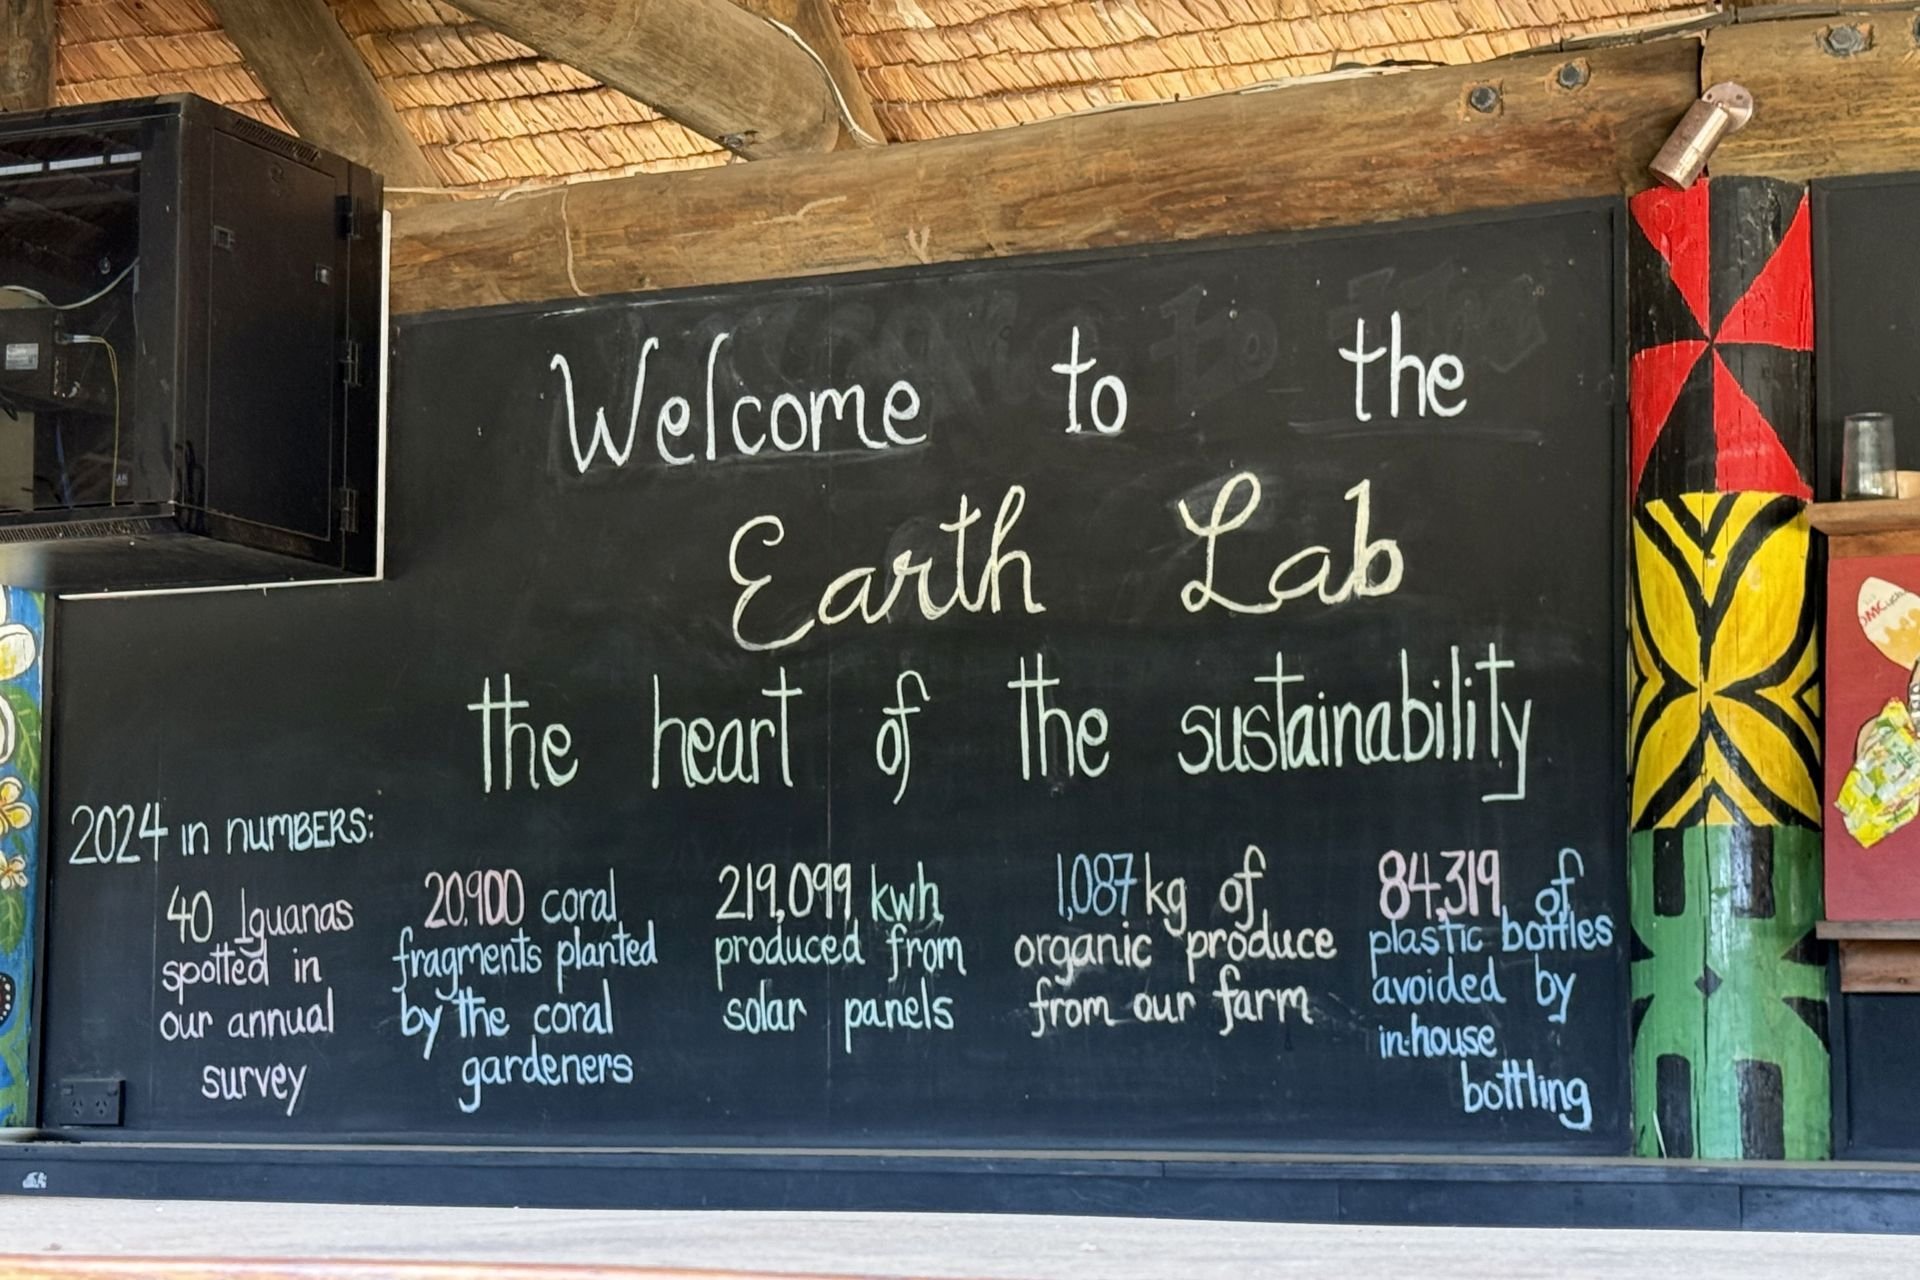 Welcome to the
Earth Lab
the heart of the sustainability
2024 in NUMBERS:
40 Iguanas
spotted in
our annual
survey
20,900 coral
fragments planted
by the coral
gardeners
219,099 kwh
produced from
solar panels
1,087 kg of
organic produce
from our farm
84,319 of
plastic bottles
avoided by
in-house
bottling